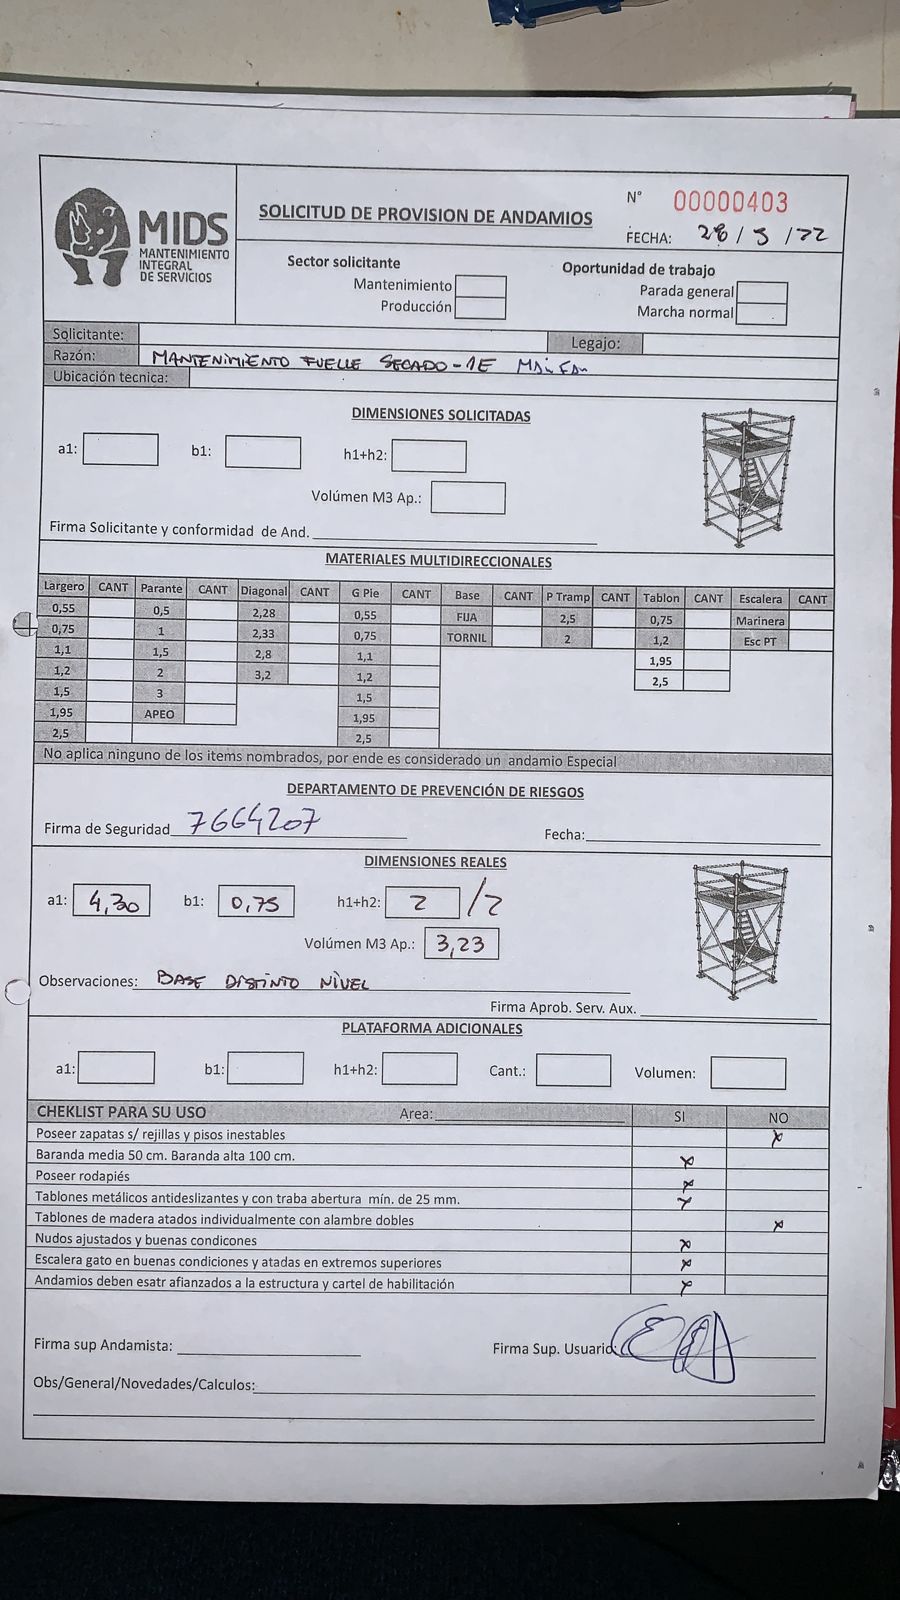 MIDS
MANTENIMIENTO
INTEGRAL
DE SERVICIOS
SOLICITUD DE PROVISION DE ANDAMIOS
N° 00000403
FECHA: 28/5/22
Sector solicitante
Mantenimiento
Producción
Oportunidad de trabajo
Parada general
Marcha normal
Solicitante: Legajo:
Razón: MANTENIMIENTO FUELLE SECADO-1E
Ubicación tecnica:
DIMENSIONES SOLICITADAS
a1: b1: h1+h2:
Volúmen M3 Ap.:
Firma Solicitante y conformidad de And.
MATERIALES MULTIDIRECCIONALES
Largero CANT Parante CANT Diagonal CANT G Pie CANT Base CANT P Tramp CANT Tablon CANT Escalera CANT
0,55 0,5 2,28 0,55 FIJA 2,5 0,75 Marinera
0,75 1 2,33 0,75 TORNIL 2 1,2 Esc PT
1,1 1,5 2,8 1,1 1,95
1,2 2 3,2 1,2 2,5
1,5 3 1,5
1,95 APEO 1,95
2,5 2,5
No aplica ninguno de los items nombrados, por ende es considerado un andamio Especial
DEPARTAMENTO DE PREVENCIÓN DE RIESGOS
Firma de Seguridad 7664207 Fecha:
DIMENSIONES REALES
a1: 4,30 b1: 0,75 h1+h2: 2 /2
Volúmen M3 Ap.: 3,23
Observaciones: BASE DISTINTO NIVEL
Firma Aprob. Serv. Aux.
PLATAFORMA ADICIONALES
a1: b1: h1+h2: Cant.: Volumen:
CHEKLIST PARA SU USO Area: SI NO
Poseer zapatas s/ rejillas y pisos inestables x
Baranda media 50 cm. Baranda alta 100 cm. x
Poseer rodapiés x
Tablones metálicos antideslizantes y con traba abertura mín. de 25 mm. x
Tablones de madera atados individualmente con alambre dobles x
Nudos ajustados y buenas condicones x
Escalera gato en buenas condiciones y atadas en extremos superiores x
Andamios deben esatr afianzados a la estructura y cartel de habilitación x
Firma sup Andamista: Firma Sup. Usuario:
Obs/General/Novedades/Calculos: